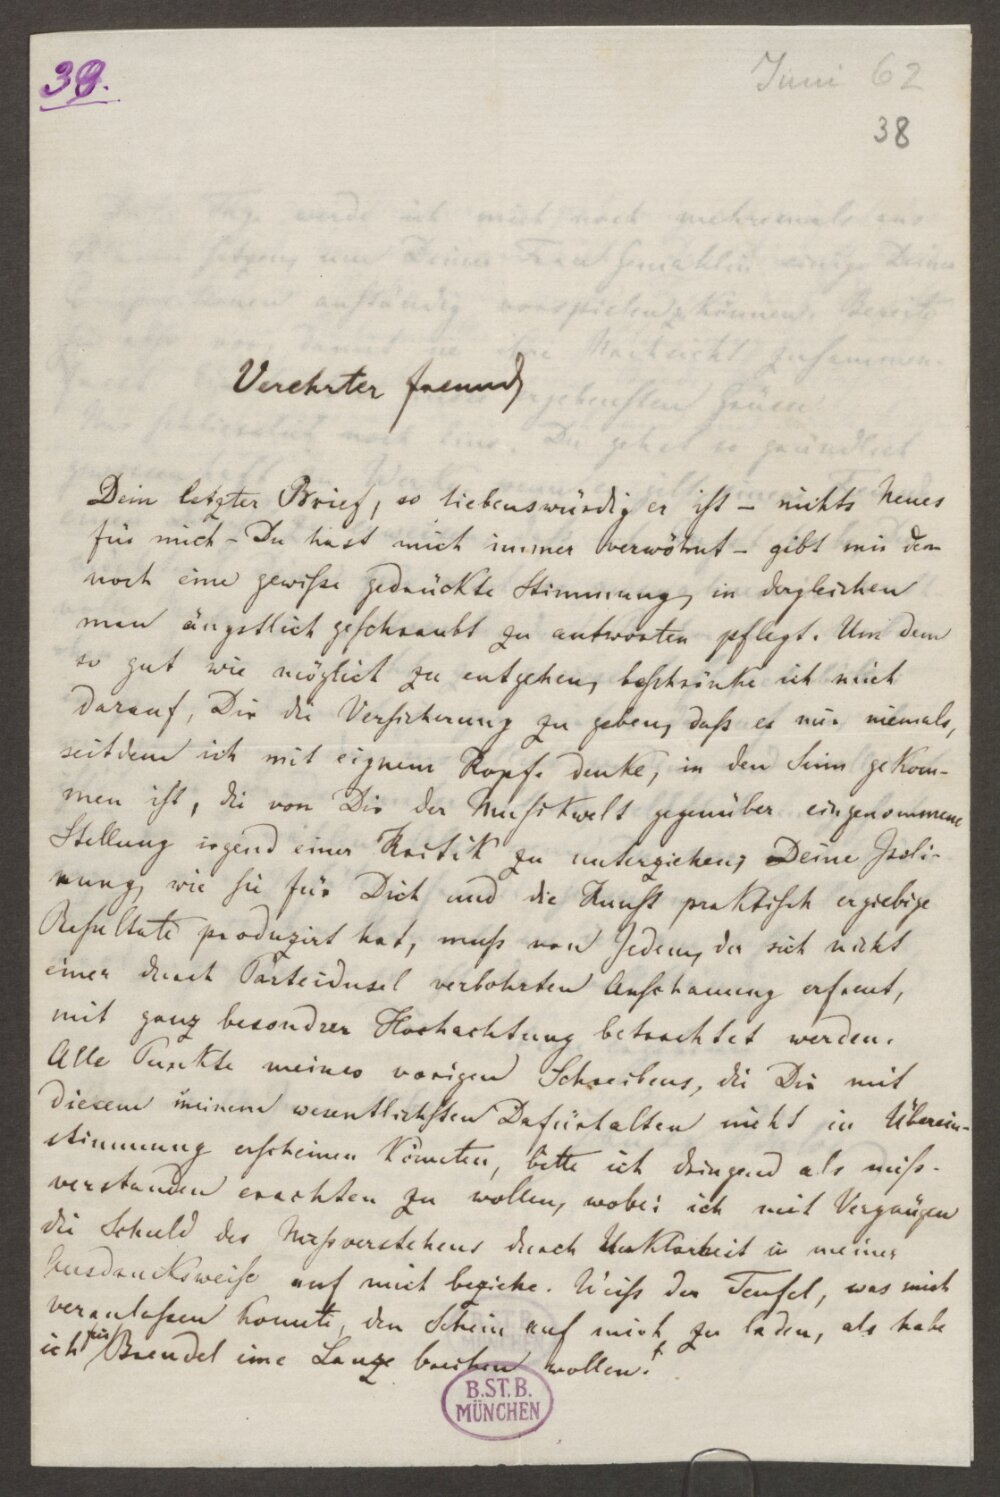 39.
Juni 62
38
Verehrter Freund,
Dein letzter Brief, so liebenswürdig er ist – nichts Neues
für mich – Du hast mich immer verwöhnt – gibt mir den-
noch eine gewisse gedrückte Stimmung, in dergleichen
man ängstlich geschraubt zu antworten pflegt. Um dem
so gut wie möglich zu entgehen, beschränke ich mich
darauf, Dir die Versicherung zu geben, daß es mir niemals,
seitdem ich mit eignem Kopfe denke, in den Sinn gekom-
men ist, die von Dir der Musikwelt gegenüber eingenommene
Stellung irgend einer Kritik zu unterziehen, Deine Isoli-
rung, wie sie für Dich und die Kunst praktisch ergiebige
Resultate produzirt hat, muß von Jedem, der sich nicht
einer durch Parteidusel verbohrten Anschauung erfreut,
mit ganz besondrer Hochachtung betrachtet werden.
Alle Punkte meines vorigen Schreibens, die Dir mit
diesem meinem wesentlichsten Dafürhalten nicht in Überein-
stimmung erscheinen könnten, bitte ich dringend als miß-
verstanden erachten zu wollen, wobei ich mit Vergnügen
die Schuld des Mißverstehens durch Unklarheit in meiner
Ausdrucksweise auf mich beziehe. Weiß der Teufel, was mich
veranlassen konnte, den Schein auf mich zu laden, als habe
ich für Brendel eine Lanze brechen wollen!
B.ST.B.
MÜNCHEN